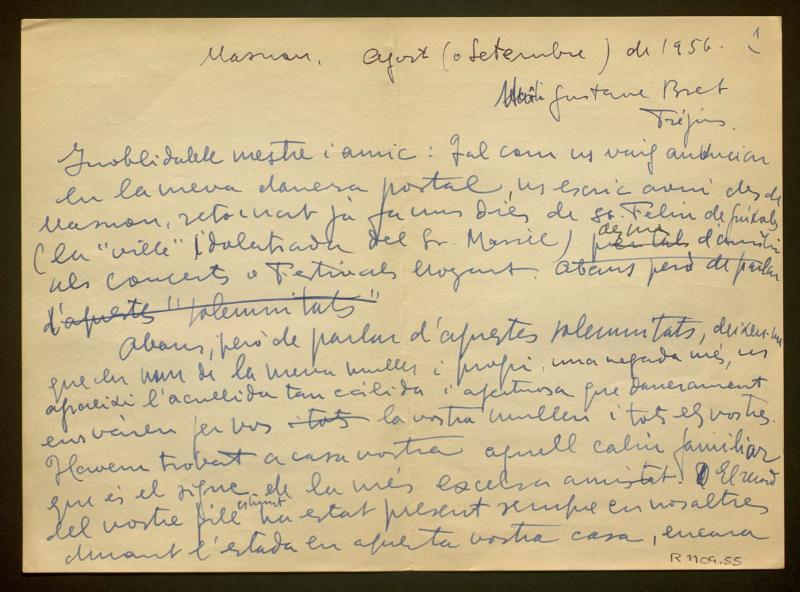 Masnou, Agost (o Setembre) de 1956. 1
Gustave Bret
Fréjus.
Inoblidable mestre i amic: Tal com us vaig anunciar
en la meva darrera postal, us escric avui des de
Masnou, retornat ja fa uns dies de St. Feliu de Guíxols
(la "ville" idolatrada del Sr. Massié) després d'assistir
als concerts o Festivals Mozart. Abans però de parlar
d'aquestes "solemnitats"
Abans, però de parlar d'aquestes solemnitats, deixeu-me
que en nom de la meva muller i propi, una vegada més, us
agraeixi l'acullida tan càlida i afectuosa que darrerament
ens vàren fer vos i tots la vostra muller i tots els vostres.
Havem trobat a casa vostra aquell caliu familiar
que és el signe de la més excelsa amistat. El record
del vostre fill estimat ha estat present sempre en nosaltres
durant l'estada en aquesta vostra casa, encara
R 1109.55